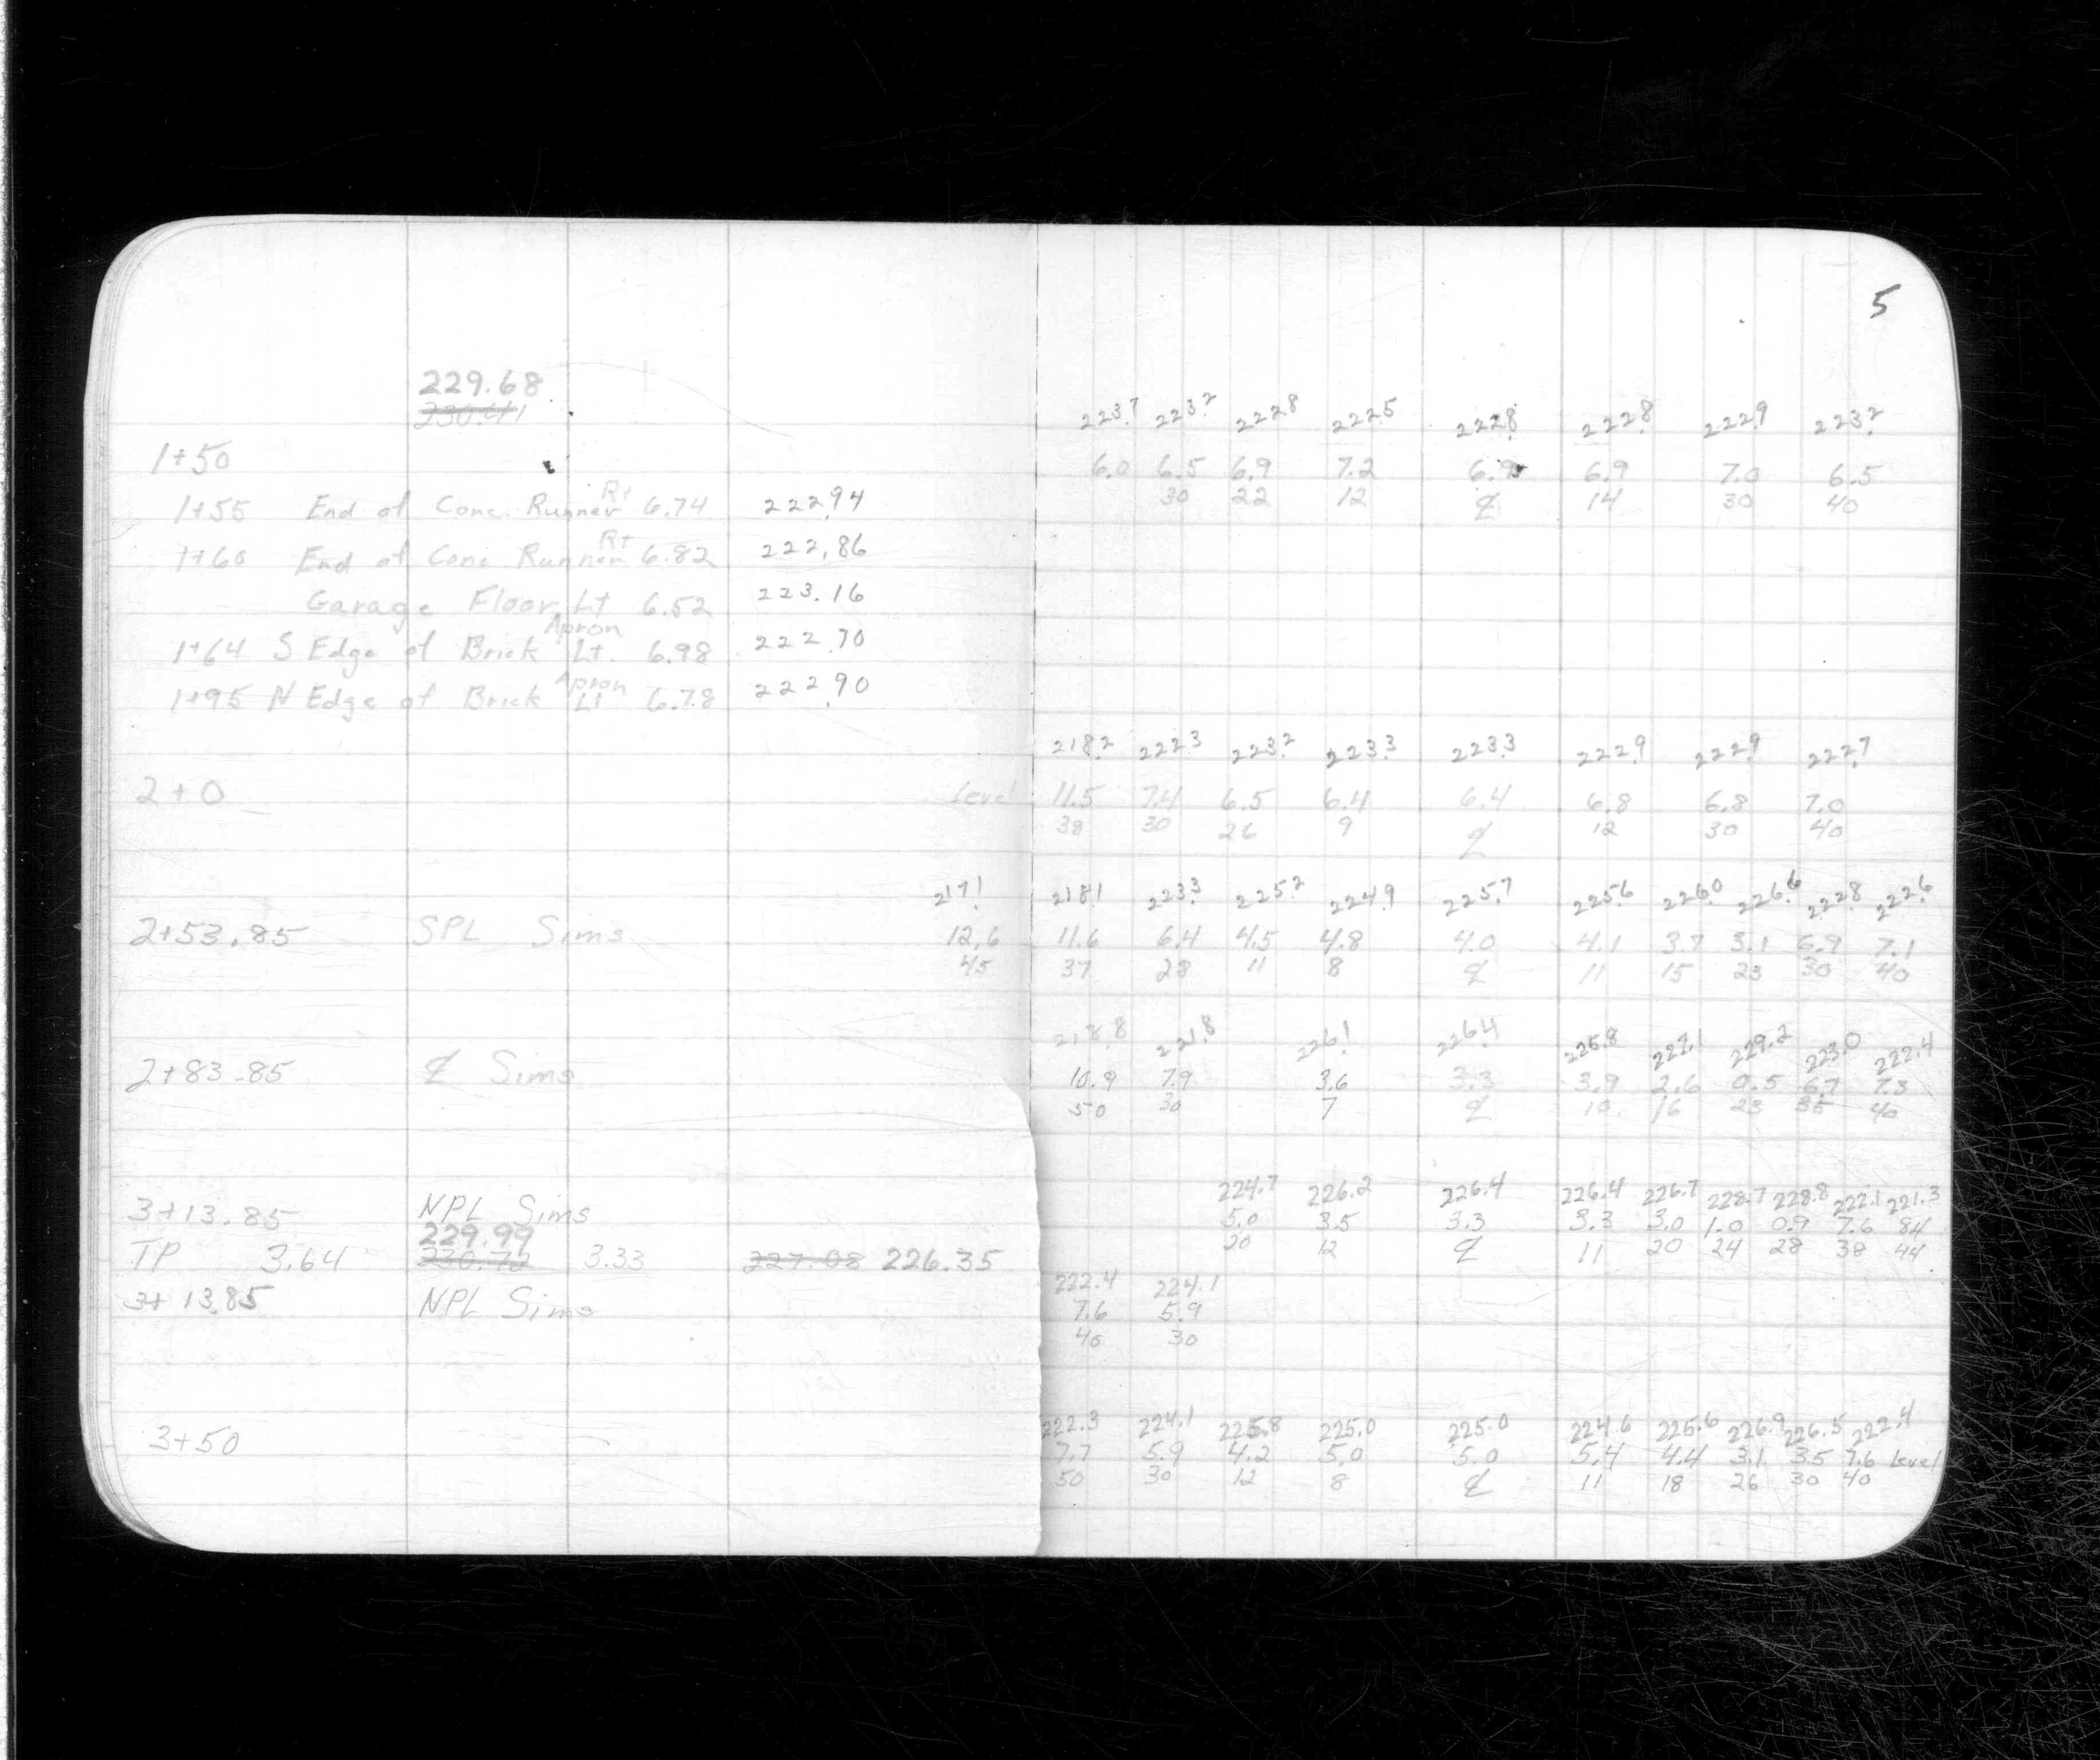 5
229.68
230.41
223.7 223.2 222.8 222.5 222.8 222.8 222.9 223.2
1+50 6.0 6.5 6.9 7.2 6.9 6.9 7.0 6.5
30 22 12 ℄ 14 30 40
1+55 End of Conc. Runner Rt 6.74 222.94
1+60 End of Conc Runner Rt 6.82 222.86
Garage Floor, Lt 6.52 223.16
1+64 S Edge of Brick Apron Lt. 6.98 222.70
1+95 N Edge of Brick Apron Lt 6.78 222.90
218.2 222.3 223.2 223.3 223.3 222.9 222.9 222.7
2+0 Level 11.5 7.4 6.5 6.4 6.4 6.8 6.8 7.0
38 30 26 9 ℄ 12 30 40
217.1 218.1 223.3 225.2 224.9 225.7 225.6 226.0 226.6 222.8 222.6
2+53.85 SPL Sims 12.6 11.6 6.4 4.5 4.8 4.0 4.1 3.7 3.1 6.9 7.1
45 37 28 11 8 ℄ 11 15 23 30 40
218.8 221.8 226.1 226.4 225.8 227.1 229.2 223.0 222.4
2+83.85 ℄ Sims 10.9 7.9 3.6 3.3 3.9 2.6 0.5 6.7 7.3
50 30 7 ℄ 10 16 23 35 40
224.7 226.2 226.4 226.4 226.7 228.7 228.8 222.1 221.3
3+13.85 NPL Sims 5.0 3.5 3.3 3.3 3.0 1.0 0.9 7.6 8.4
20 12 ℄ 11 20 24 28 38 44
229.99
TP 3.64 230.72 3.33 227.08 226.35
222.4 224.1
3+13.85 NPL Sims 7.6 5.9
40 30
222.3 224.1 225.8 225.0 225.0 224.6 225.6 226.9 226.5 222.4
3+50 7.7 5.9 4.2 5.0 5.0 5.4 4.4 3.1 3.5 7.6 Level
50 30 12 8 ℄ 11 18 26 30 40